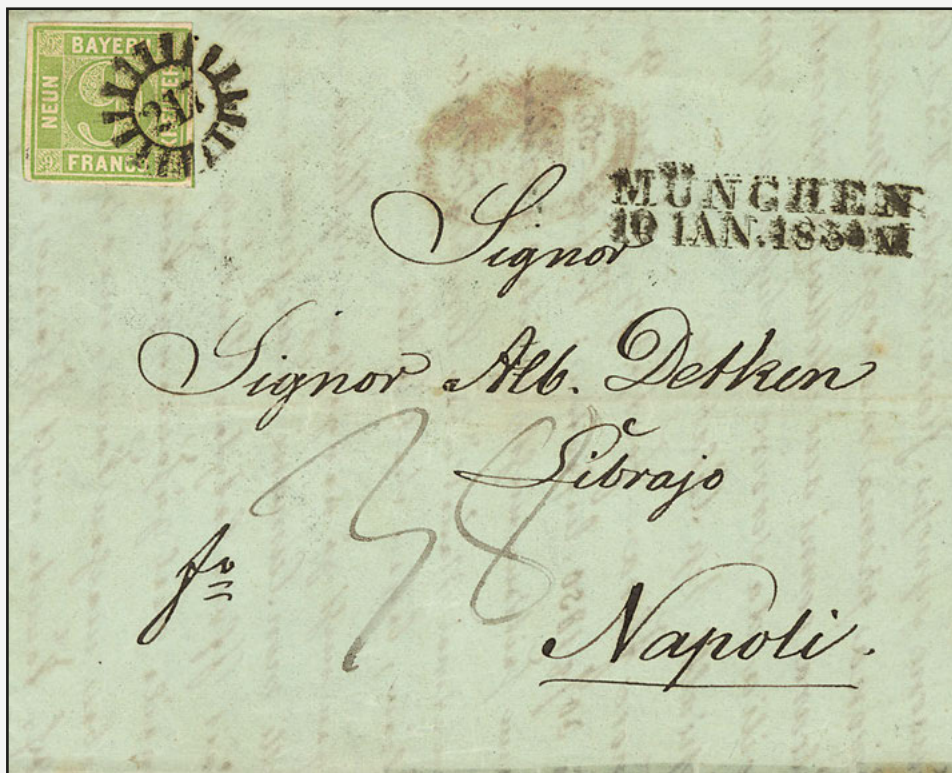 BAYERN
NEUN
FRANCO
217
MÜNCHEN
10 IAN.185
Signor
Signor Alb. Detken
Librajo
fo
38
Napoli.